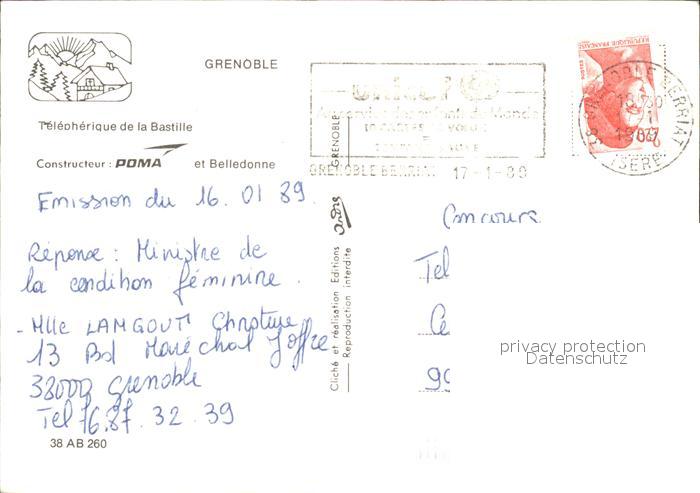 GRENOBLE
Téléphérique de la Bastille
Constructeur : POMA et Belledonne
Emission du 16. 01 89.
Réponse : Ministre de
la condition féminine.
- Mlle LAMGOUTI Christine
13 Bd Maréchal Joffre
38000 Grenoble
Tel 76.87.32.39
38 AB 260
Cliché et réalisation Editions André GRENOBLE
Reproduction interdite
unicef
GRENOBLE 17-1-89
REPUBLIQUE FRANÇAISE
POSTES
2,20
ISERE
Concours
Tel
Ce
99
privacy protection
Datenschutz